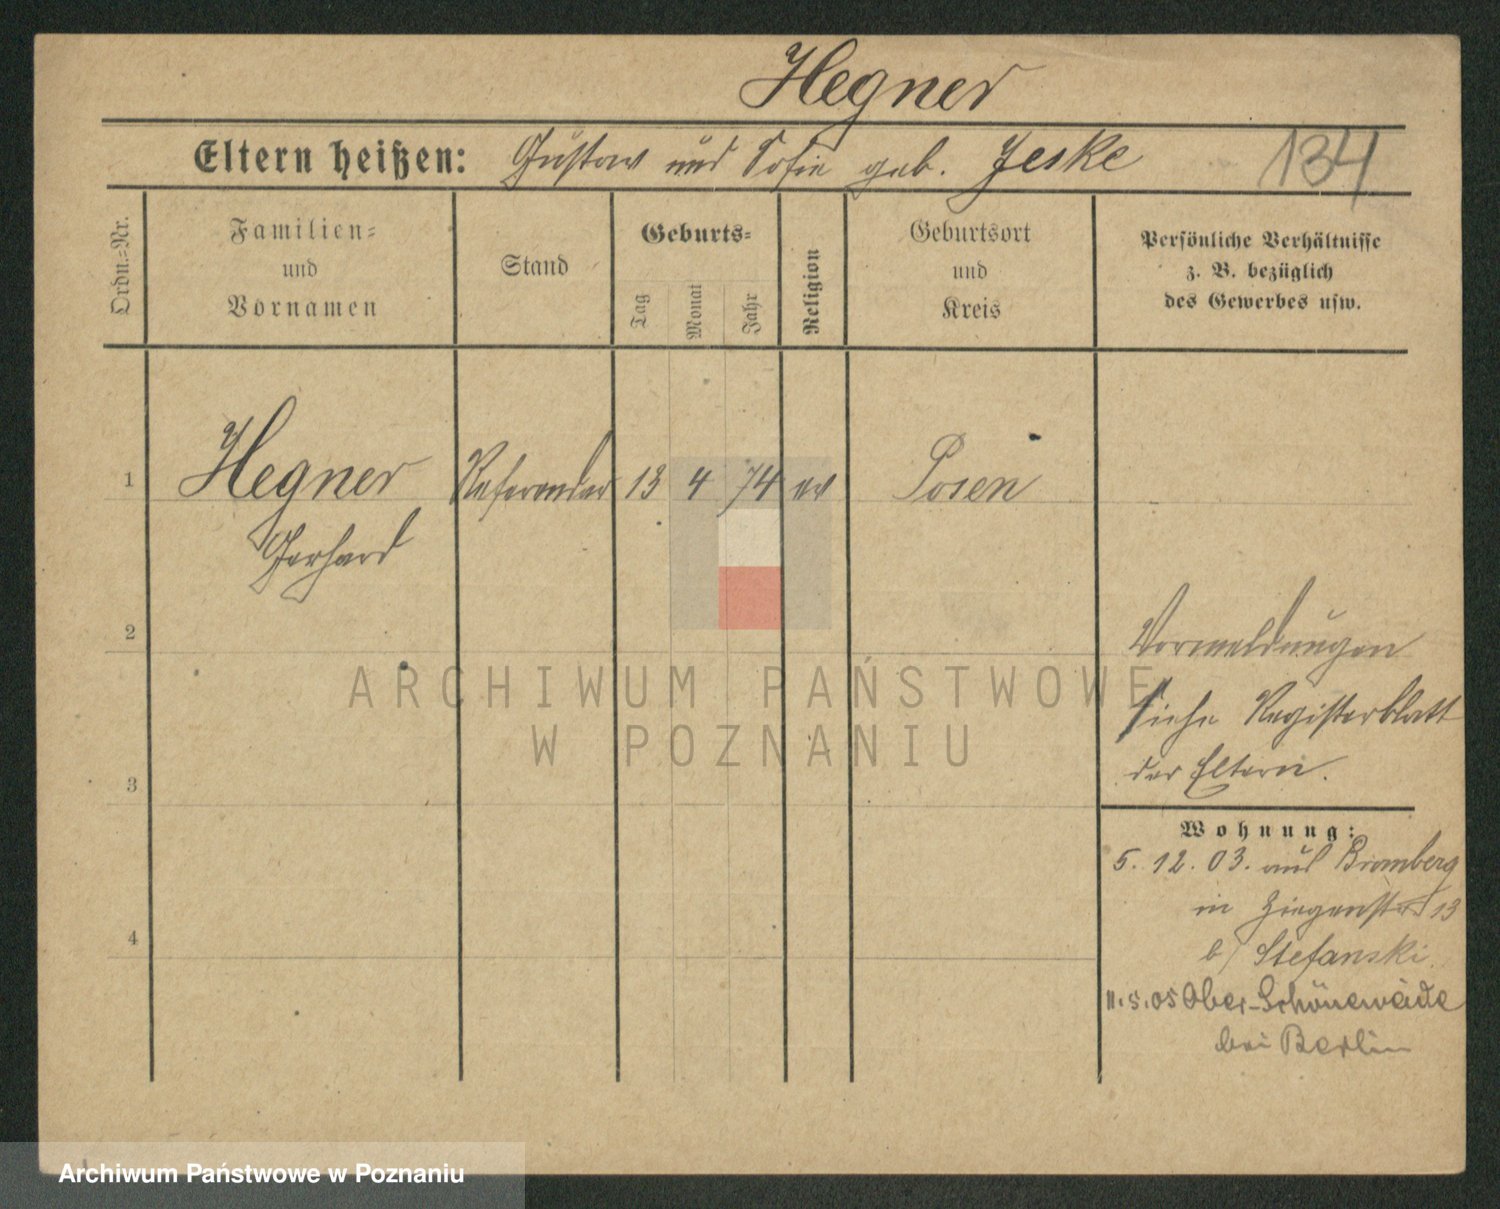 Hegner
Eltern heißen: Gustav und Sofie geb. Jeske 134
Ordn.-Nr.
Familien-
und
Vornamen
Stand
Geburts-
Tag
Monat
Jahr
Religion
Geburtsort
und
Kreis
Persönliche Verhältnisse
z. B. bezüglich
des Gewerbes usw.
1 Hegner Referendar 13 4 74 ev Posen
Gerhard
2
Vormeldungen
siehe Registerblatt
der Eltern.
3
Wohnung:
5. 12. 03. aus Bromberg
in Ziegenstr 13
4
b/ Stefanski
11.5.05 Ober-Schöneweide
bei Berlin
ARCHIWUM PAŃSTWOWE
W POZNANIU
Archiwum Państwowe w Poznaniu